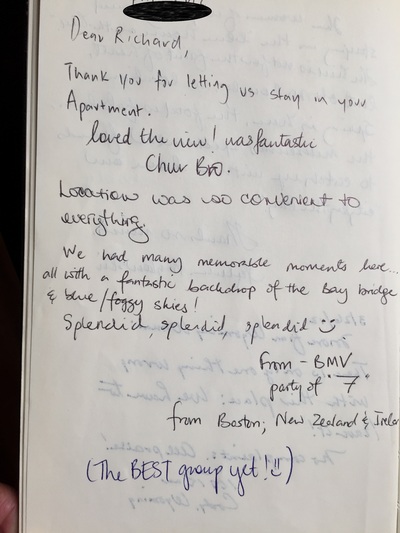 Dear Richard,
Thank you for letting us stay in your
Apartment.
loved the view! was fantastic
Chur Bro.
Location was so convenient to
everything.
We had many memorable moments here...
all with a fantastic backdrop of the Bay bridge
& blue/foggy skies!
Splendid, splendid, splendid
from - BMV
party of 7.
from Boston, New Zealand &
(The BEST group yet!